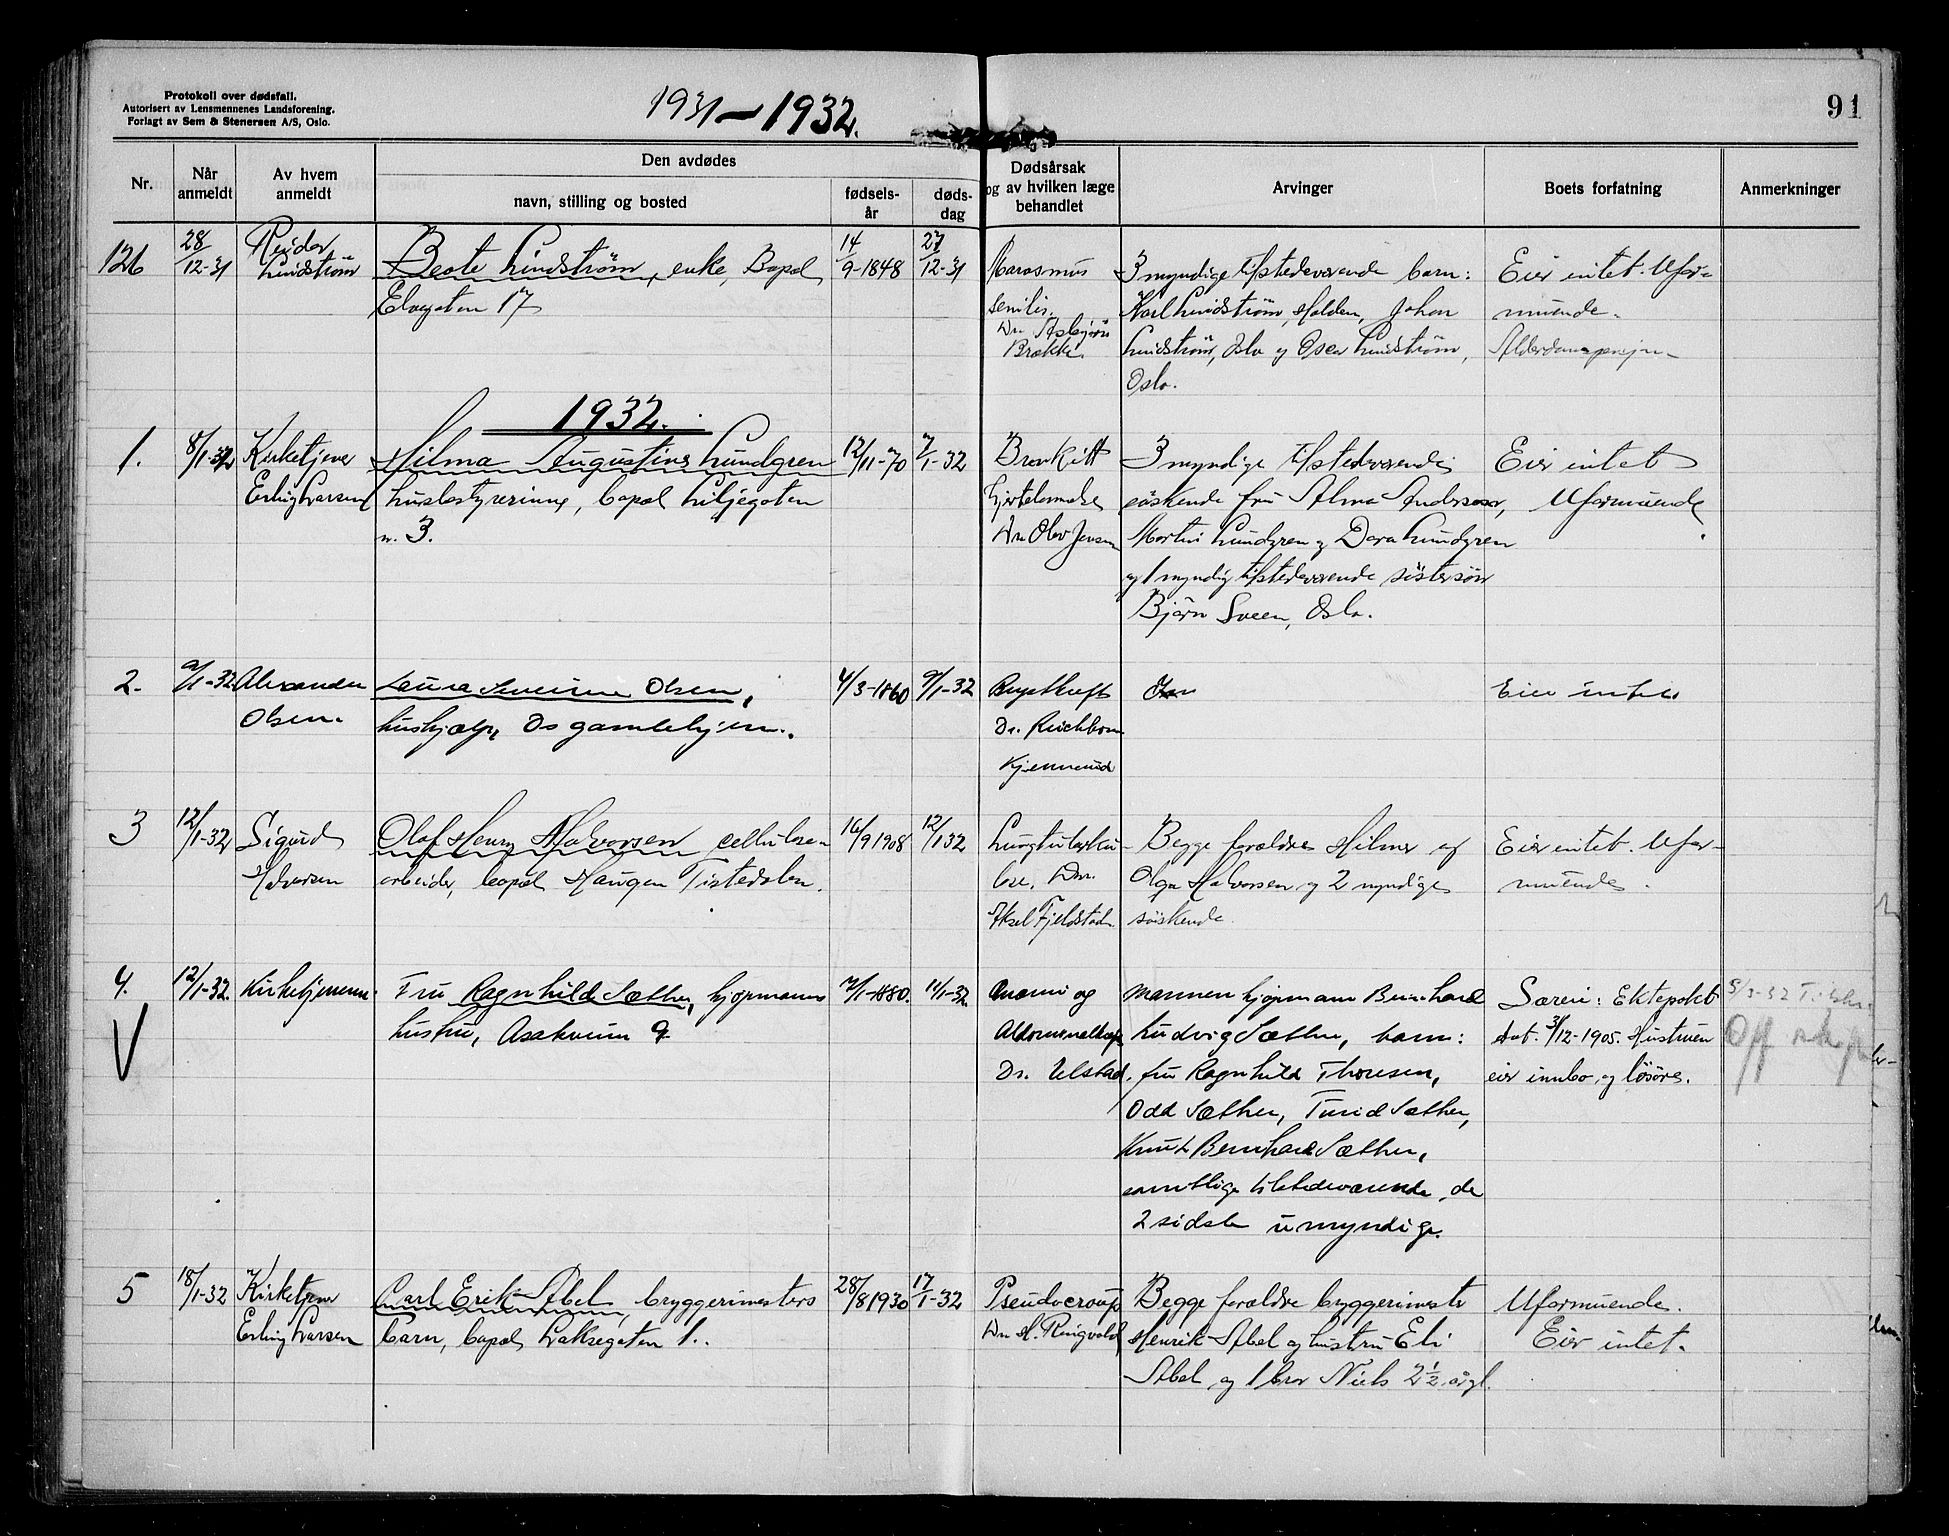 Protokoll over dødsfall.
Autorisert av Lensmennenes Landsforening.
Forlagt av Sem & Stenersen A/S, Oslo.
1931 — 1932.
91
Nr.
Når anmeldt
Av hvem anmeldt
Den avdødes
navn, stilling og bosted
fødsels-år
døds-dag
Dødsårsak og av hvilken læge behandlet
Arvinger
Boets forfatning
Anmerkninger
126
28/12-31
Reidar
Lindström
Beate Lindström, enke, Bopæl
Elvegaten 17
14/9-1848
27/12-31
Marasmus
senilis.
Dr. Asbjörn
Brække.
3 myndige tilstedeværende barn:
Karl Lindström, Halden, Johan
Lindström, Oslo og Oscar Lindström,
Oslo.
Eier intet. Ufor-
muende.
1932.
1.
8/1-32
Kirketjener
Erling Larsen
Hilma Augustine Lundgren
husbestyrerinne, bopæl Liljegaten
nr. 3.
12/11-70
7/1-32
Bronkitt
hjertelammelse
Dr. Olav Jensen
3 myndige tilstedeværende
söskende fru Alma Andersson,
Martin Lundgren og Dora Lundgren
og 1 myndig tilstedeværende söstersön
Björn Sveen, Oslo.
Eier intet
Uformuende
2.
9/1-32
Alexander
Olsen.
Laura Severine Olsen,
hushjælp, Os gamlehjem.
4/3-1860
9/1-32
Brystkreft
Dr. Reichborn
Kjennerud
Eier intet.
3
12/1-32
Sigurd
Halvorsen
Olaf Henry Halvorsen cellulose-
arbeider, bopæl Haugen Tistedalen.
16/9 1908
12/1 32
Lungetuberku-
lose. Dr.
Aksel Fjeldstad.
Begge forældre Hilmer og
Olga Halvorsen og 2 myndige
söskende
Eier intet. Ufor-
muende.
4.
12/1-32.
Kirketjeneren.
Fru Ragnhild Sæther, kjøpmanns
hustru, Asakveien 9
7/1-1880.
11/1-32
Anæmi og
Dr. Ulstad.
Mannen kjøpmann Bernhard
Ludvig Sæther, barn:
fru Ragnhild Thoresen,
Odd Sæther, Turid Sæther,
Knut Bernhard Sæther,
samtlige tilstedeværende, de
2 sidste umyndige.
Særeie: Ektepakt
dat. 31/12-1905. Hustruen
eier innbo og løsøre.
5/3-32
Off skifte
5
18/1-32
Kirketjener
Erling Larsen
Carl Erik Abel, bryggerimesters
barn, bopæl Laksegaten 1.
28/8 1930
17/1-32
Pseudocroup
Dr. H. Ringvold
Begge forældre bryggerimester
Henrik Abel og hustru Eli
Abel og 1 bror Niels 2½ årgl.
Uformuende.
Eier intet.